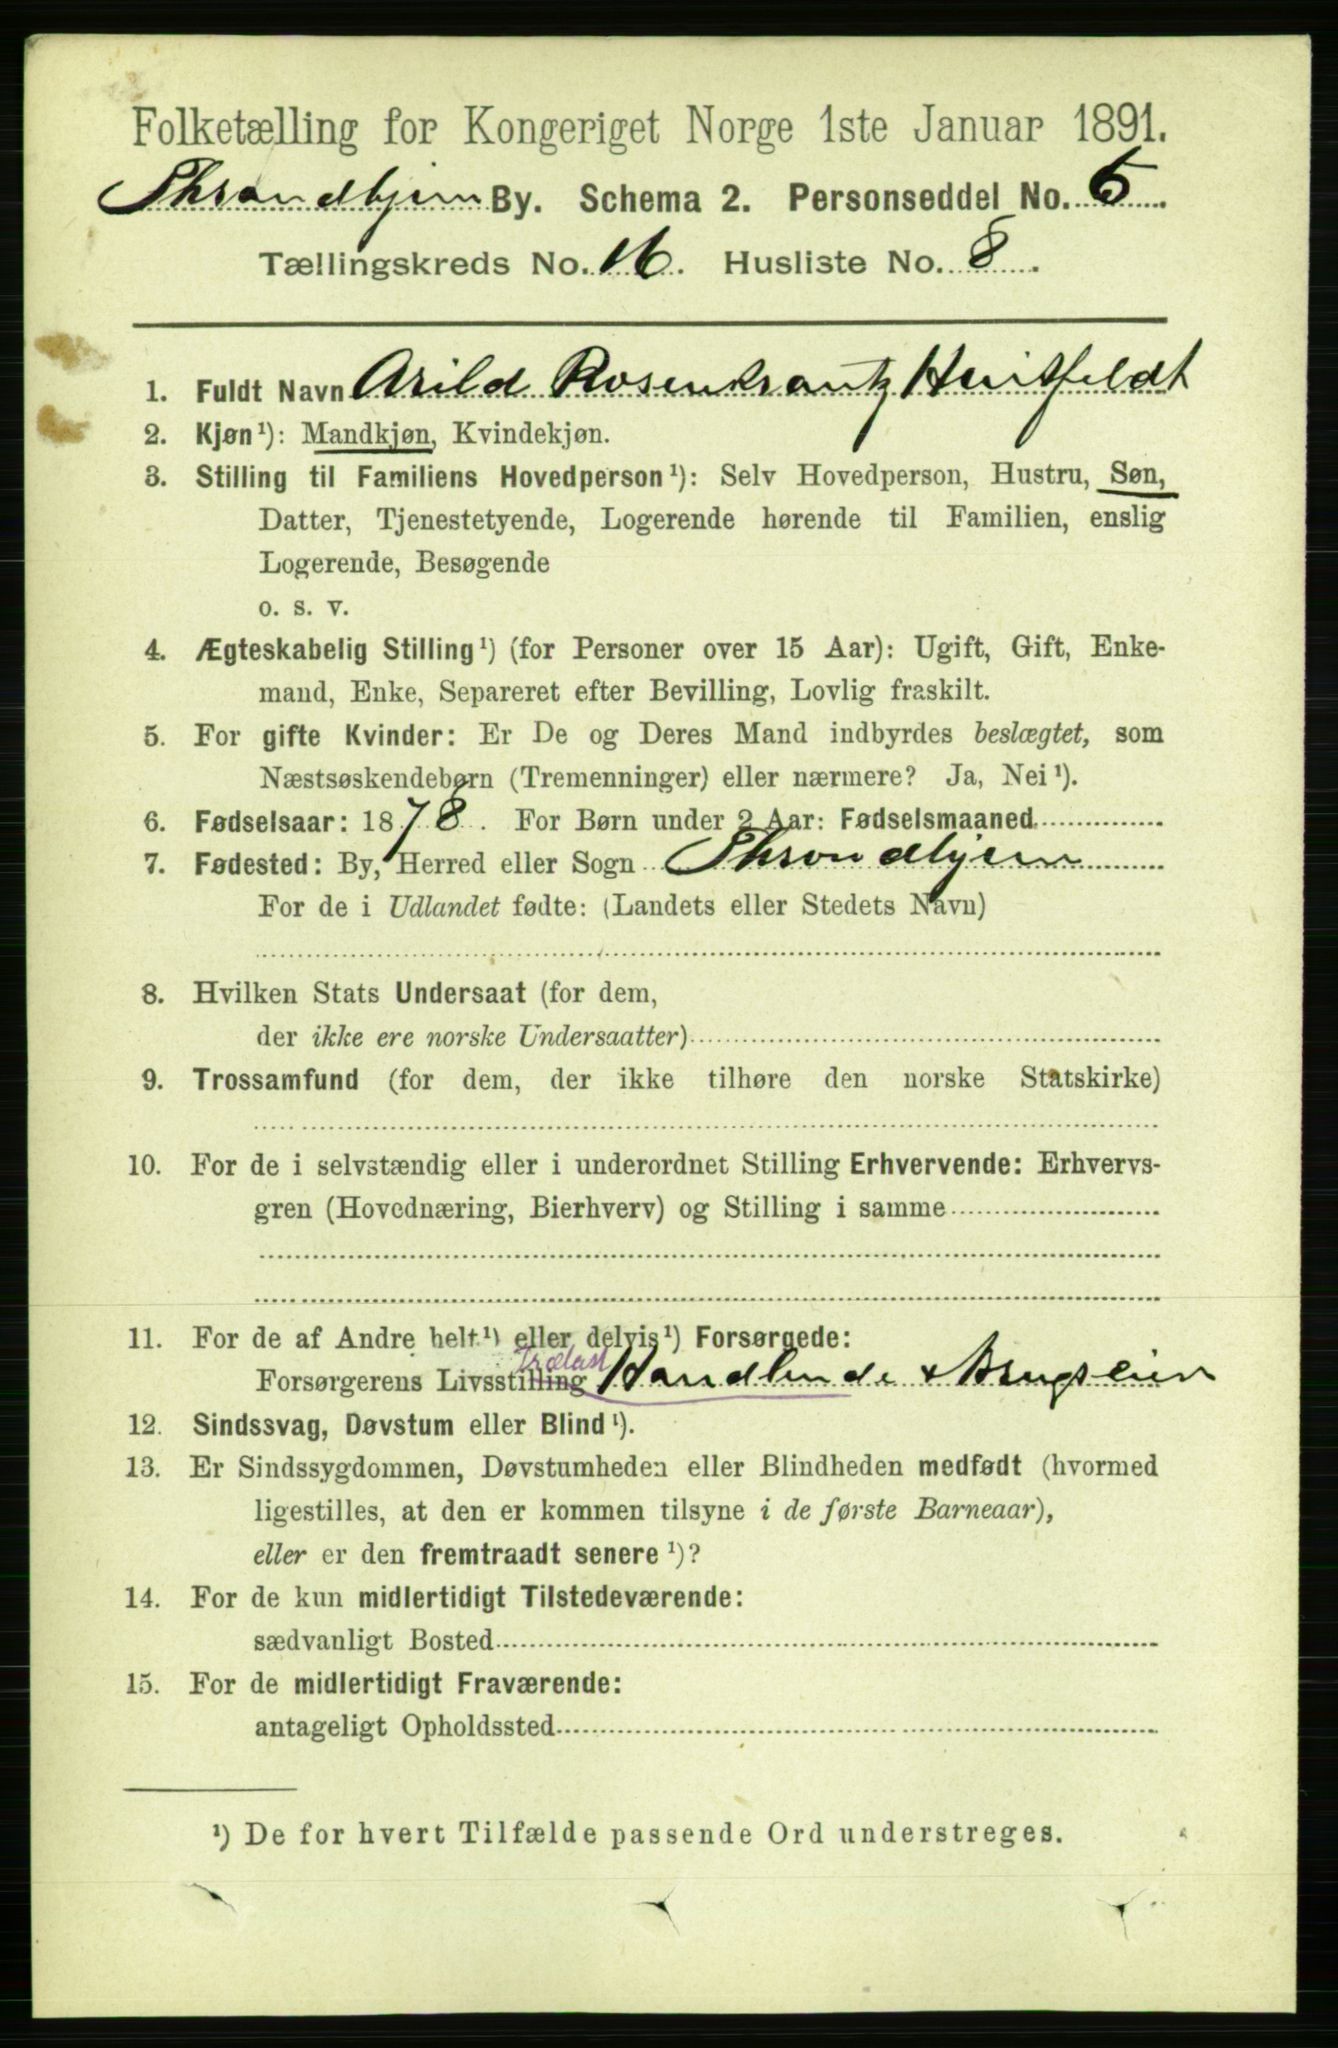 Folketælling for Kongeriget Norge 1ste Januar 1891.
Throndhjem By. Schema 2. Personseddel No. 5.
Tællingskreds No. 16. Husliste No. 8.
1. Fuldt Navn Arild Rosenkrantz Huitfeldt
2. Kjøn¹): Mandkjøn, Kvindekjøn.
3. Stilling til Familiens Hovedperson¹): Selv Hovedperson, Hustru, Søn,
Datter, Tjenestetyende, Logerende hørende til Familien, enslig
Logerende, Besøgende
o. s. v.
4. Ægteskabelig Stilling¹) (for Personer over 15 Aar): Ugift, Gift, Enke-
mand, Enke, Separeret efter Bevilling, Lovlig fraskilt.
5. For gifte Kvinder: Er De og Deres Mand indbyrdes beslægtet, som
Næstsøskendebørn (Tremenninger) eller nærmere? Ja, Nei¹).
6. Fødselsaar: 1878. For Børn under 2 Aar: Fødselsmaaned
7. Fødested: By, Herred eller Sogn Throndhjem
For de i Udlandet fødte: (Landets eller Stedets Navn)
8. Hvilken Stats Undersaat (for dem,
der ikke ere norske Undersaatter)
9. Trossamfund (for dem, der ikke tilhøre den norske Statskirke)
10. For de i selvstændig eller i underordnet Stilling Erhvervende: Erhvervs-
gren (Hovednæring, Bierhverv) og Stilling i samme
11. For de af Andre helt¹) eller delvis¹) Forsørgede:
Trælast
Forsørgerens Livsstilling Handlende & Brugseier
12. Sindssvag, Døvstum eller Blind¹).
13. Er Sindssygdommen, Døvstumheden eller Blindheden medfødt (hvormed
ligestilles, at den er kommen tilsyne i de første Barneaar),
eller er den fremtraadt senere¹)?
14. For de kun midlertidigt Tilstedeværende:
sædvanligt Bosted
15. For de midlertidigt Fraværende:
antageligt Opholdssted
¹) De for hvert Tilfælde passende Ord understreges.